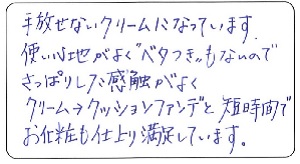 手放せないクリームになっています。
使い心地がよく〝ベタつき〟もないので
さっぱりした感触がよく
クリーム→クッションファンデと短時間で
お化粧も仕上り満足しています。